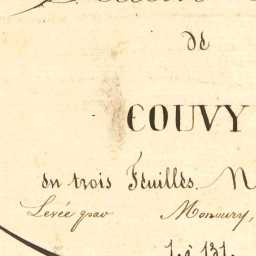 de
COUVY
en trois Feuilles. N
Levée par Monoury,